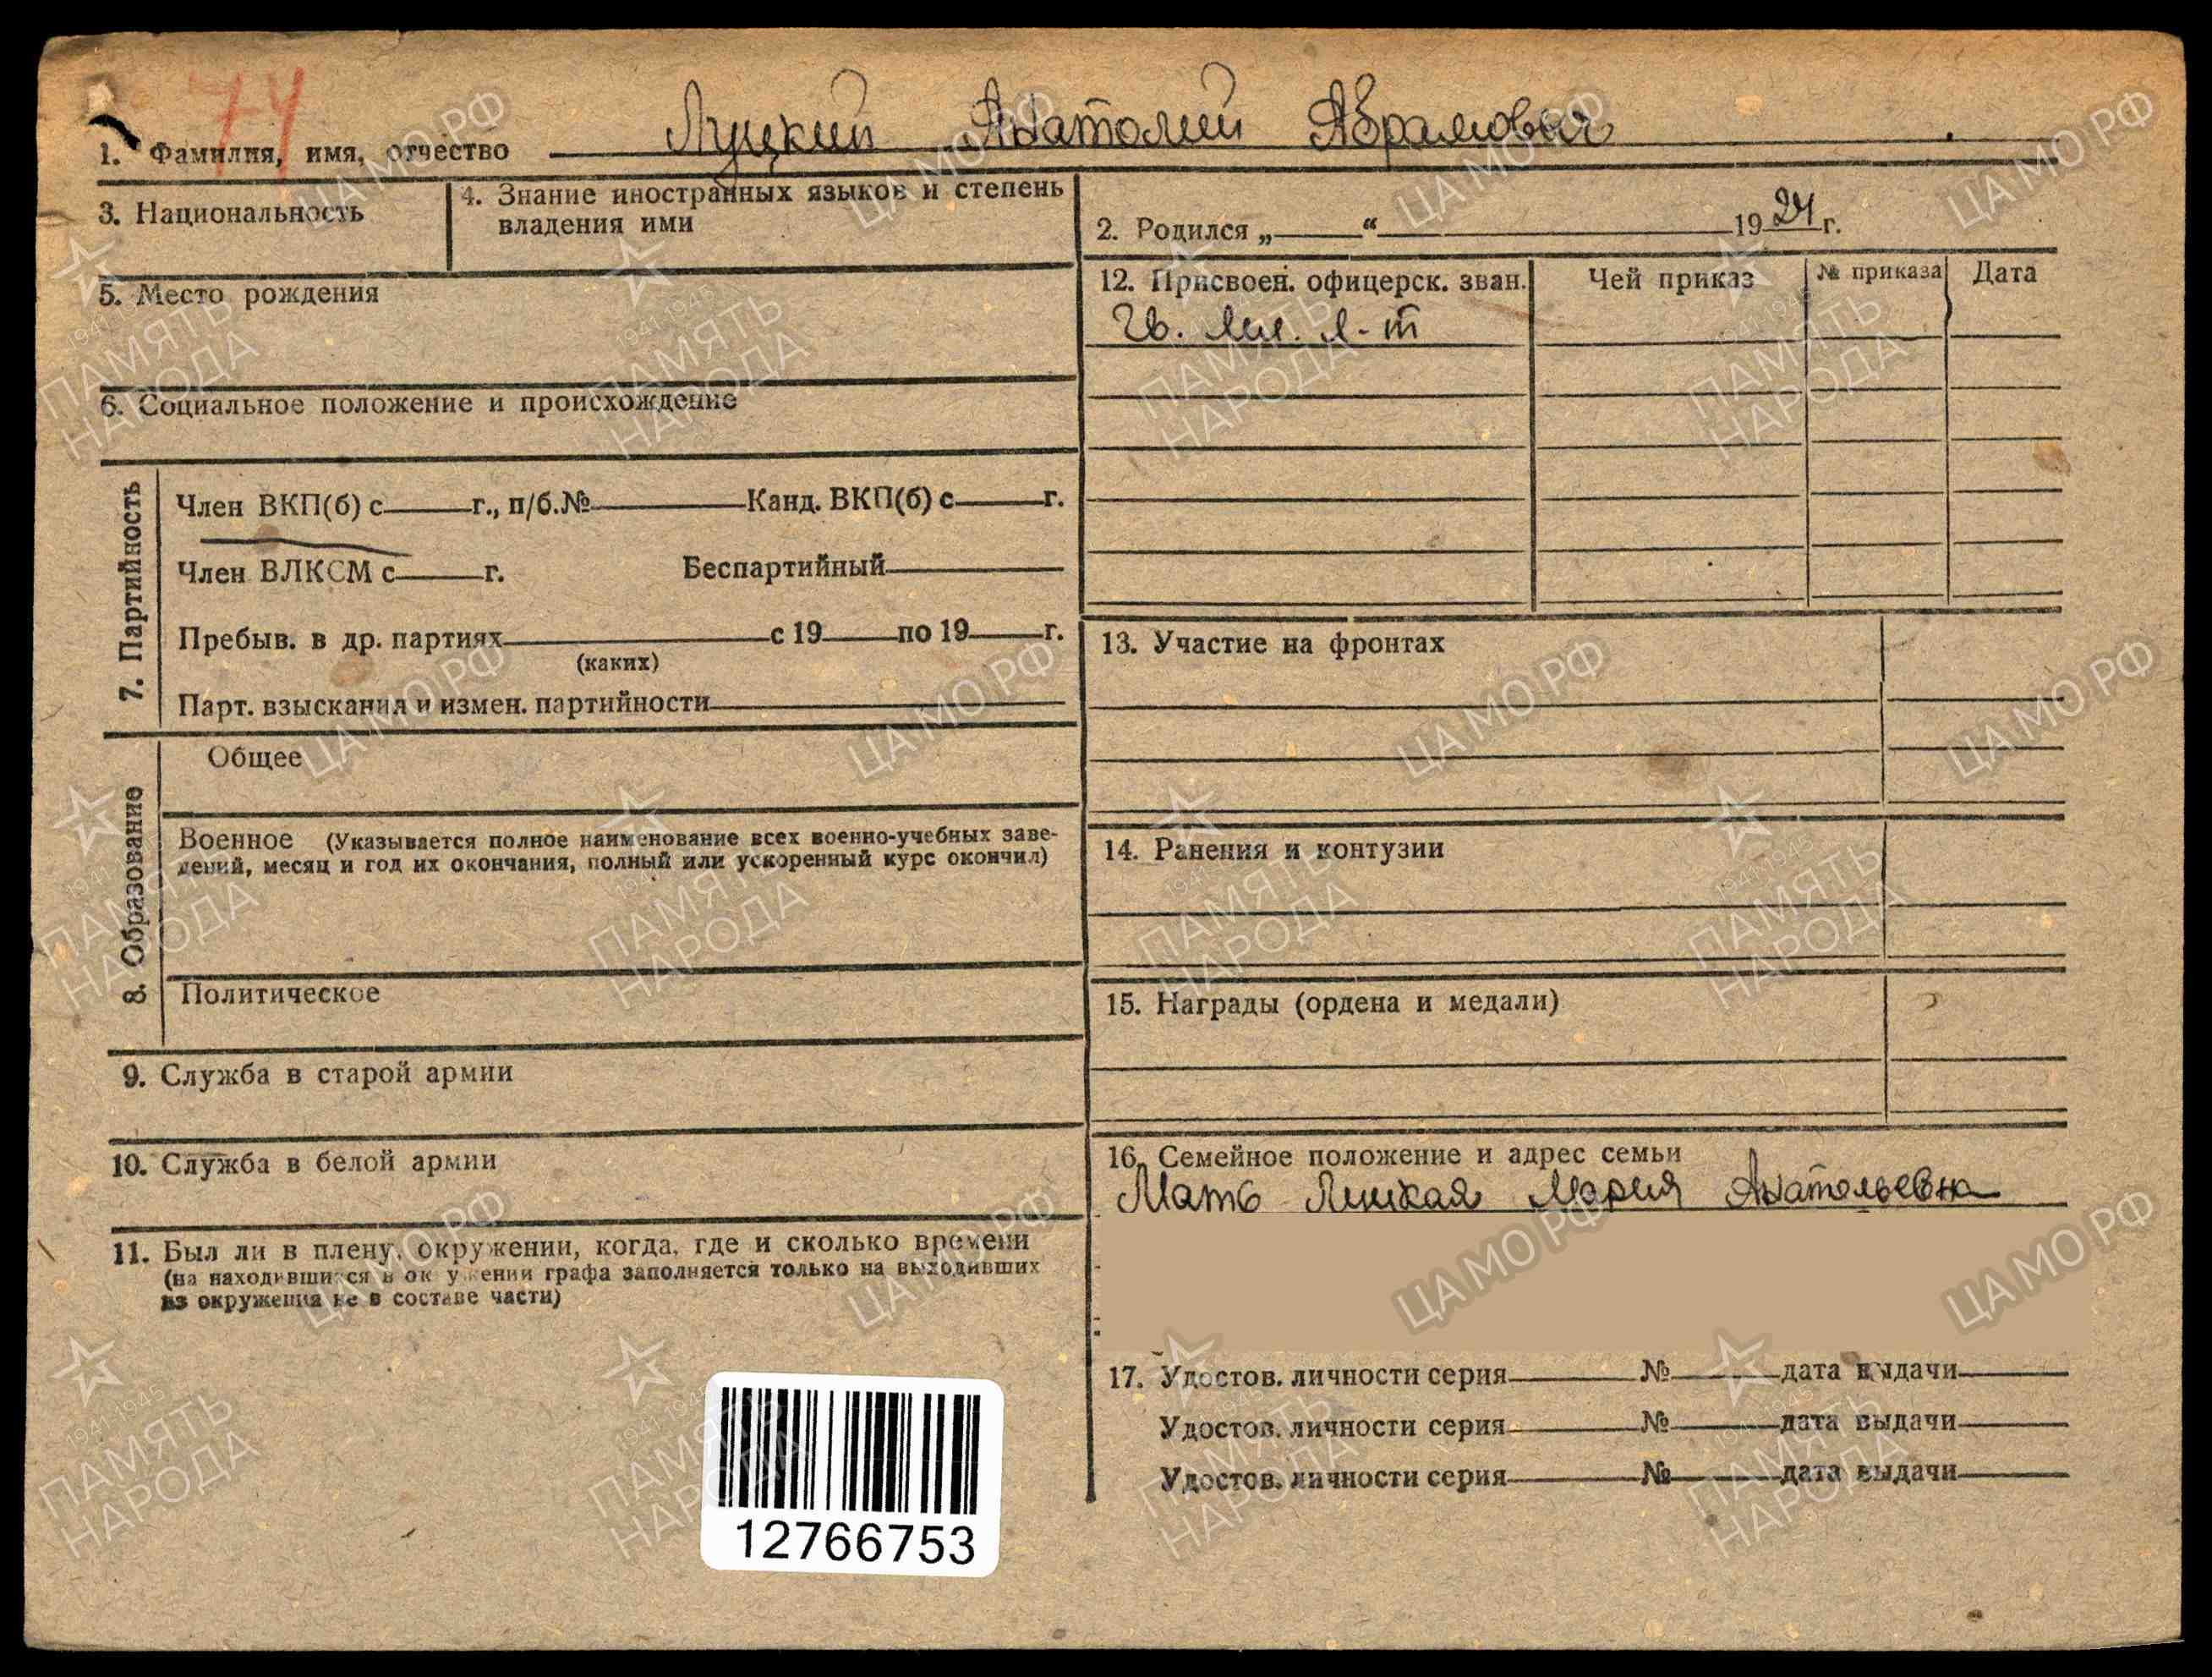 74
1. Фамилия, имя, отчество Луцкий Анатолий Абрамович
3. Национальность
4. Знание иностранных языков и степень
владения ими
2. Родился „ “ 19 24 г.
5. Место рождения
12. Присвоен. офицерск. зван. Чей приказ № приказа Дата
Гв. мл. л-т
6. Социальное положение и происхождение
7. Партийность
Член ВКП(б) с г., п/б.№ Канд. ВКП(б) с г.
Член ВЛКСМ с г. Беспартийный
Пребыв. в др. партиях с 19 по 19 г.
(каких)
Парт. взыскания и измен. партийности
13. Участие на фронтах
8. Образование
Общее
Военное (Указывается полное наименование всех военно-учебных заве-
дений, месяц и год их окончания, полный или ускоренный курс окончил)
14. Ранения и контузии
Политическое
15. Награды (ордена и медали)
9. Служба в старой армии
10. Служба в белой армии
16. Семейное положение и адрес семьи
Мать Луцкая Мария Анатольевна
11. Был ли в плену, окружении, когда, где и сколько времени
(на находившихся в окружении графа заполняется только на выходивших
из окружения не в составе части)
17. Удостов. личности серия № дата выдачи
Удостов. личности серия № дата выдачи
Удостов. личности серия № дата выдачи
12766753
ЦА МО РФ
1941-1945
ПАМЯТЬ
НАРОДА